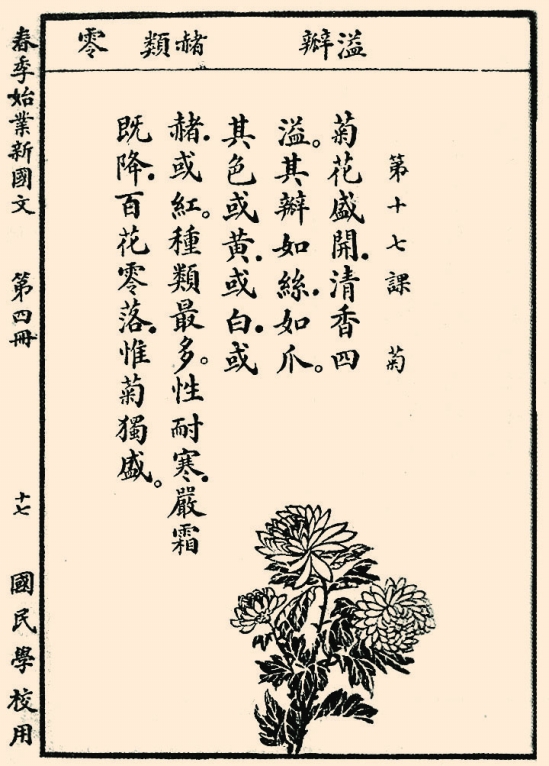 溢瓣 赭類 零
第十七課 菊
菊花盛開．清香四
溢。其瓣如絲．如爪。
其色或黃．或白．或
赭．或紅。種類最多。性耐寒．嚴霜
既降．百花零落．惟菊獨盛。
春季始業新國文 第四冊 十七 國民學校用